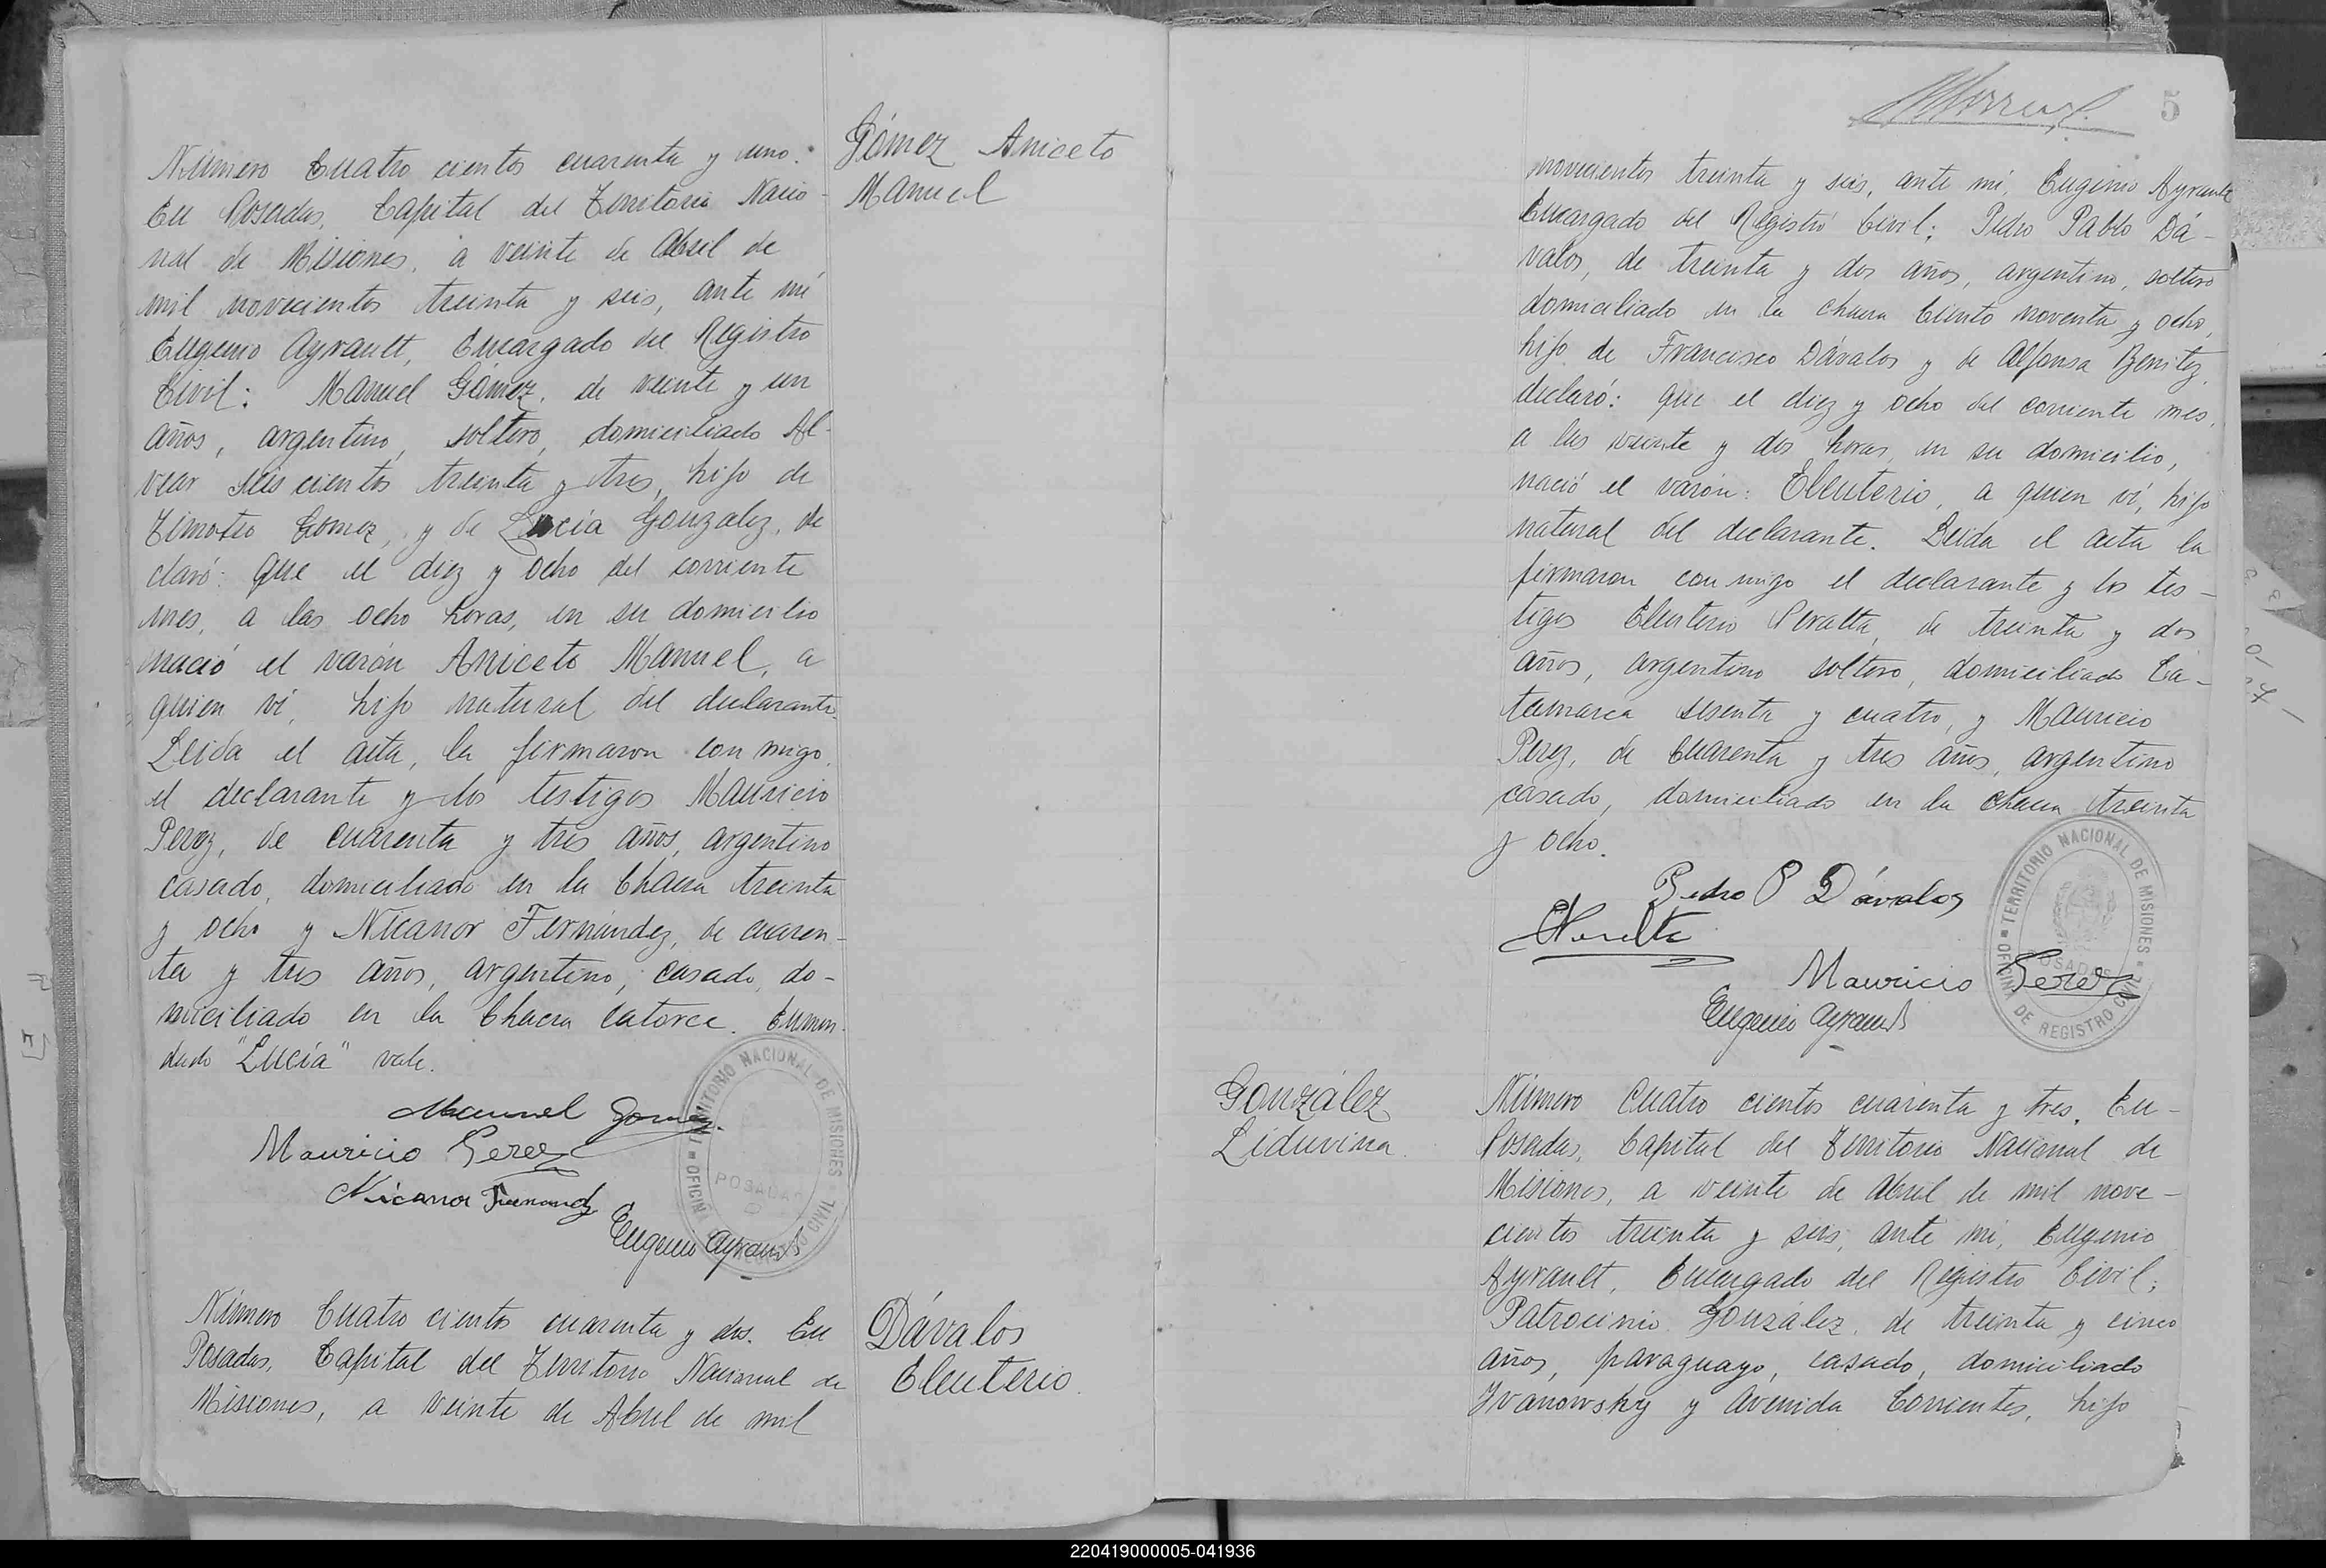 Gómez Aniceto
Manuel
Número Cuatro cientos cuarenta y uno.
En Posadas, Capital del Territorio Nacio-
nal de Misiones, a veinte de Abril de
mil novecientos treinta y seis, ante mí
Eugenio Ayrault, Encargado del Registro
Civil: Manuel Gómez, de veinte y un
años, argentino, soltero, domiciliado Al-
vear seis cientos treinta y tres, hijo de
Timoteo Gomez, y de Lucía Gonzalez, de
claró: que el diez y ocho del corriente
mes, a las ocho horas, en su domicilio
nació el varón Aniceto Manuel, a
quien ví, hijo natural del declarante.
Leida el acta, la firmaron con migo,
el declarante y los testigos Mauricio
Perez, de cuarenta y tres años, argentino
casado, domiciliado en la Chacra treinta
y ocho y Nicanor Fernández, de cuaren-
ta y tres años, argentino, casado, do-
miciliado en la Chacra catorce. Enmen-
dado "Lucía" vale.
Manuel Gomez
Mauricio Perez
Nicanor Fernandz
Eugenio Ayrault
TERRITORIO NACIONAL DE MISIONES
OFICINA DE REGISTRO CIVIL
POSADAS
Dávalos
Eleuterio
Número Cuatro cientos cuarenta y dos. En
Posadas, Capital del Territorio Nacional de
Misiones, a veinte de Abril de mil
5
novecientos treinta y seis, ante mí, Eugenio Ayrault
Encargado del Registro Civil; Pedro Pablo Dá-
valos, de treinta y dos años, argentino, soltero
domiciliado en la chacra Ciento noventa y ocho,
hijo de Francisco Dávalos y de Alfonsa Benitez,
declaró: que el diez y ocho del corriente mes,
a las veinte y dos horas, en su domicilio,
nació el varón: Eleuterio, a quien ví, hijo
natural del declarante. Leida el acta la
firmaron con migo el declarante y los tes-
tigos Eleuterio Peralta, de treinta y dos
años, argentino soltero, domiciliado Ca-
tamarca sesenta y cuatro, y Mauricio
Perez, de Cuarenta y tres años, argentino
casado, domiciliado en la chacra treinta
y ocho.
Pedro P Dávalos
Peralta
Mauricio Perez
Eugenio Ayrault
TERRITORIO NACIONAL DE MISIONES
OFICINA DE REGISTRO CIVIL
POSADAS
González
Liduvina
Número Cuatro cientos cuarenta y tres. En-
Posadas, Capital del Territorio Nacional de
Misiones, a veinte de Abril de mil nove-
cientos treinta y seis, ante mí, Eugenio
Ayrault, Encargado del Registro Civil;
Patrocinio González, de treinta y cinco
años, paraguayo, casado, domiciliado
Ivanowsky y Avenida Corrientes, hijo
220419000005-041936